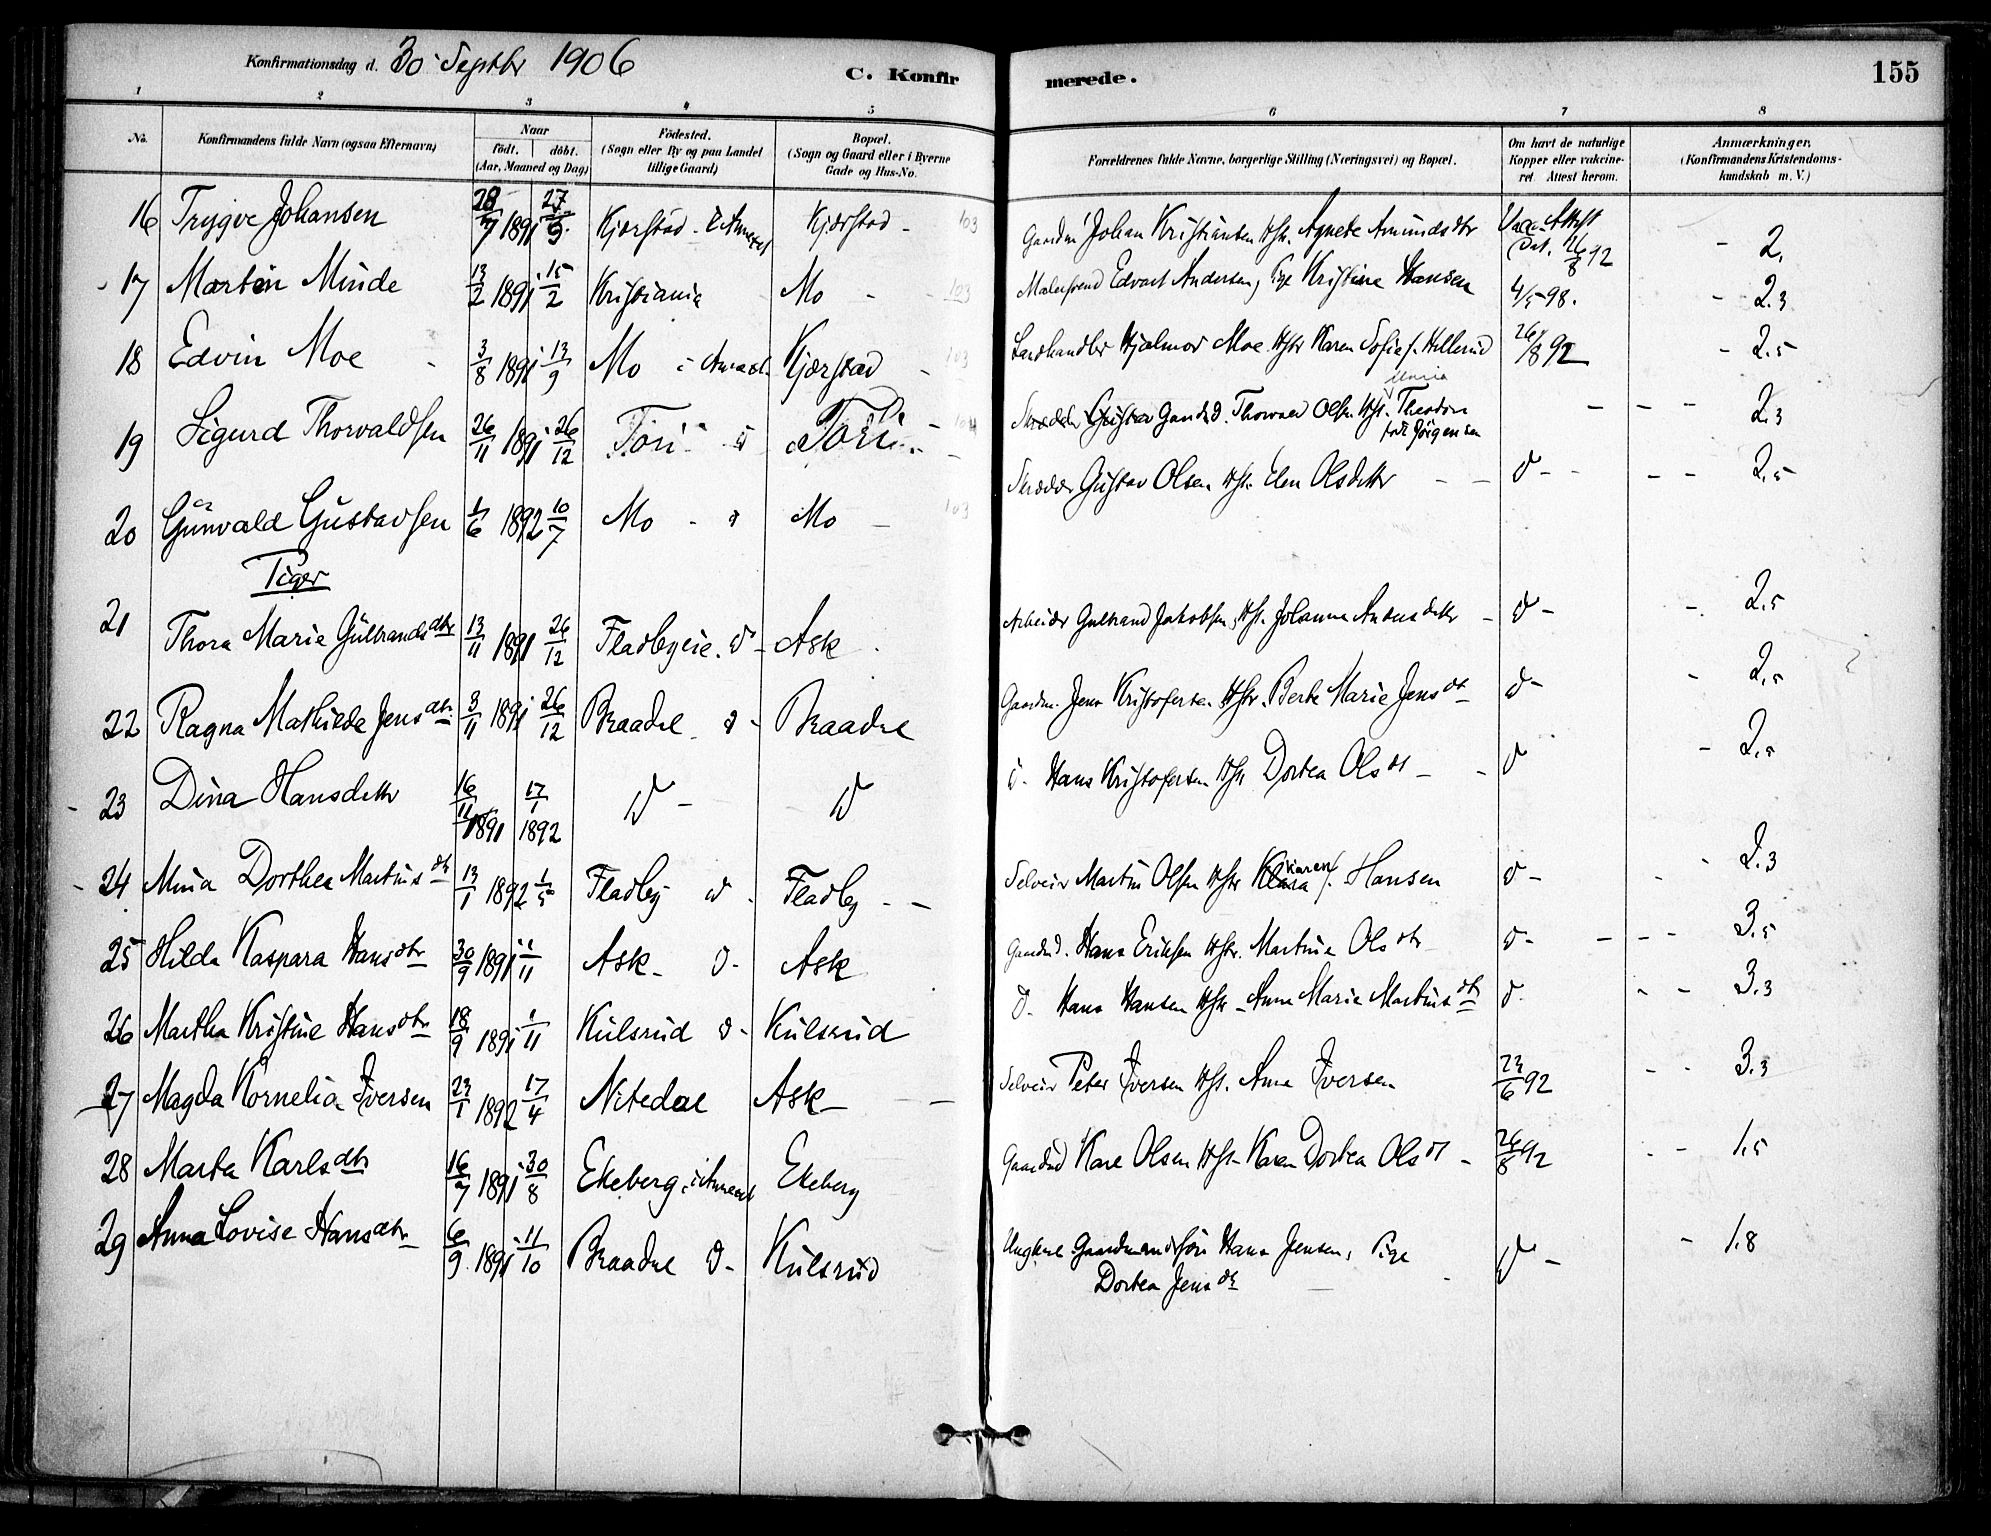 Konfirmationsdag d. 30 Septbr 1906
C. Konfirmerede.
155
1 2 3 4 5 6 7 8
No. Konfirmandens fulde Navn (ogsaa Efternavn) Naar født. døbt. (Aar, Maaned og Dag) Födested. (Sogn eller By og paa Landet tillige Gaard) Bopæl. (Sogn og Gaard eller i Byerne Gade og Hus-No. Forældrenes fulde Navne, borgerlige Stilling (Næringsvei) og Bopæl. Om havt de naturlige Kopper eller vakcineret. Attest herom. Anmærkninger. (Konfirmandens Kristendomskundskab m. V.)
16 Trygve Johansen 28/7 1891 27/9 Kjærstad i Annexet Kjærstad - 103 Gaardm Johan Kristiansen Hstr. Agnete Amundsdtr Vacc. Attest Dat. 26/8 92 - 2.
17 Martin Minde 13/2 1891 15/2 Kristiania Mo - 103 Malersvend Edvart Andersen, Pige Kristine Hansen 4/5 98. - 2.3
18 Edvin Moe 3/8 1891 13/9 Mo i Annex. Kjærstad - 103 Landhandler Hjalmar Moe Hstr Karen Sofie f. Hellerud 26/8 92 - 2.5
19 Sigurd Thorvaldsen 26/11 1891 26/12 Töri d Töri - 104 Gaardbr. Thorvald Olsen Hst. Maria Theodora født Jörgensen - - - 2.3
20 Gunvald Gustavsen 1/6 1892 10/7 Mo - d Mo - 103 Skrædder Gustav Olsen Hst. Elen Olsdatter - - d - - - - 2.5
Piger
21 Thora Marie Gulbrandsdtr 13/11 1891 26/12 Fladbyeie. d - Ask Arbeider Gulbrand Jakobsen, Hst. Johanne - d - - 2.5
22 Ragna Mathilde Jensdtr 3/11 1891 26/12 Braadel d - Braadel Gaardm. Jens Kristofersen Hstr. Berte Marie Jensdt d - - 2.5
23 Dina Hansdatter 16/11 1891 17/1 1892 d - d d. Hans Kristofersen Hstr Dortea Olsdt - - d - 2.5
24 Mina Dorthea Martinsdtr 13/1 1892 1/5 Fladby d - Fladby - - Selveier Martin Olsen Hstr Karen f. Hansen d - - 2.3
25 Hilda Kaspara Hansdtr 30/9 1891 1/11 Ask - d - Ask Gaardbr. Hans Eriksen Hstr. Martine Olsdtr d - - - - 3.5
26 Martha Kristine Hansdtr 18/9 1891 1/11 Kulsrud d - Kulsrud d. Hans Hansen Hstr - Anne Marie Martinsdt d. - - 3.3
27 Magda Kornelia Iversen 23/1 1892 17/4 Nitedal Ask - Selveier Peter Iversen Hst. Anna Iversen 23/6 92 - - 3.3
28 Marta Karlsdtr 16/7 1891 30/8 Ekeberg i Annexet Ekeberg Gaardbr Karl Olsen Hst - Karen Dortea Olsdt - 26/8 92 - - 1.5
29 Anna Lovise Hansdtr 6/9 1891 11/10 Braadel d - Kulsrud Ungkarl Gaardmandssön Hans Jensen, Pige Dortea Jensdt d - - 1.8